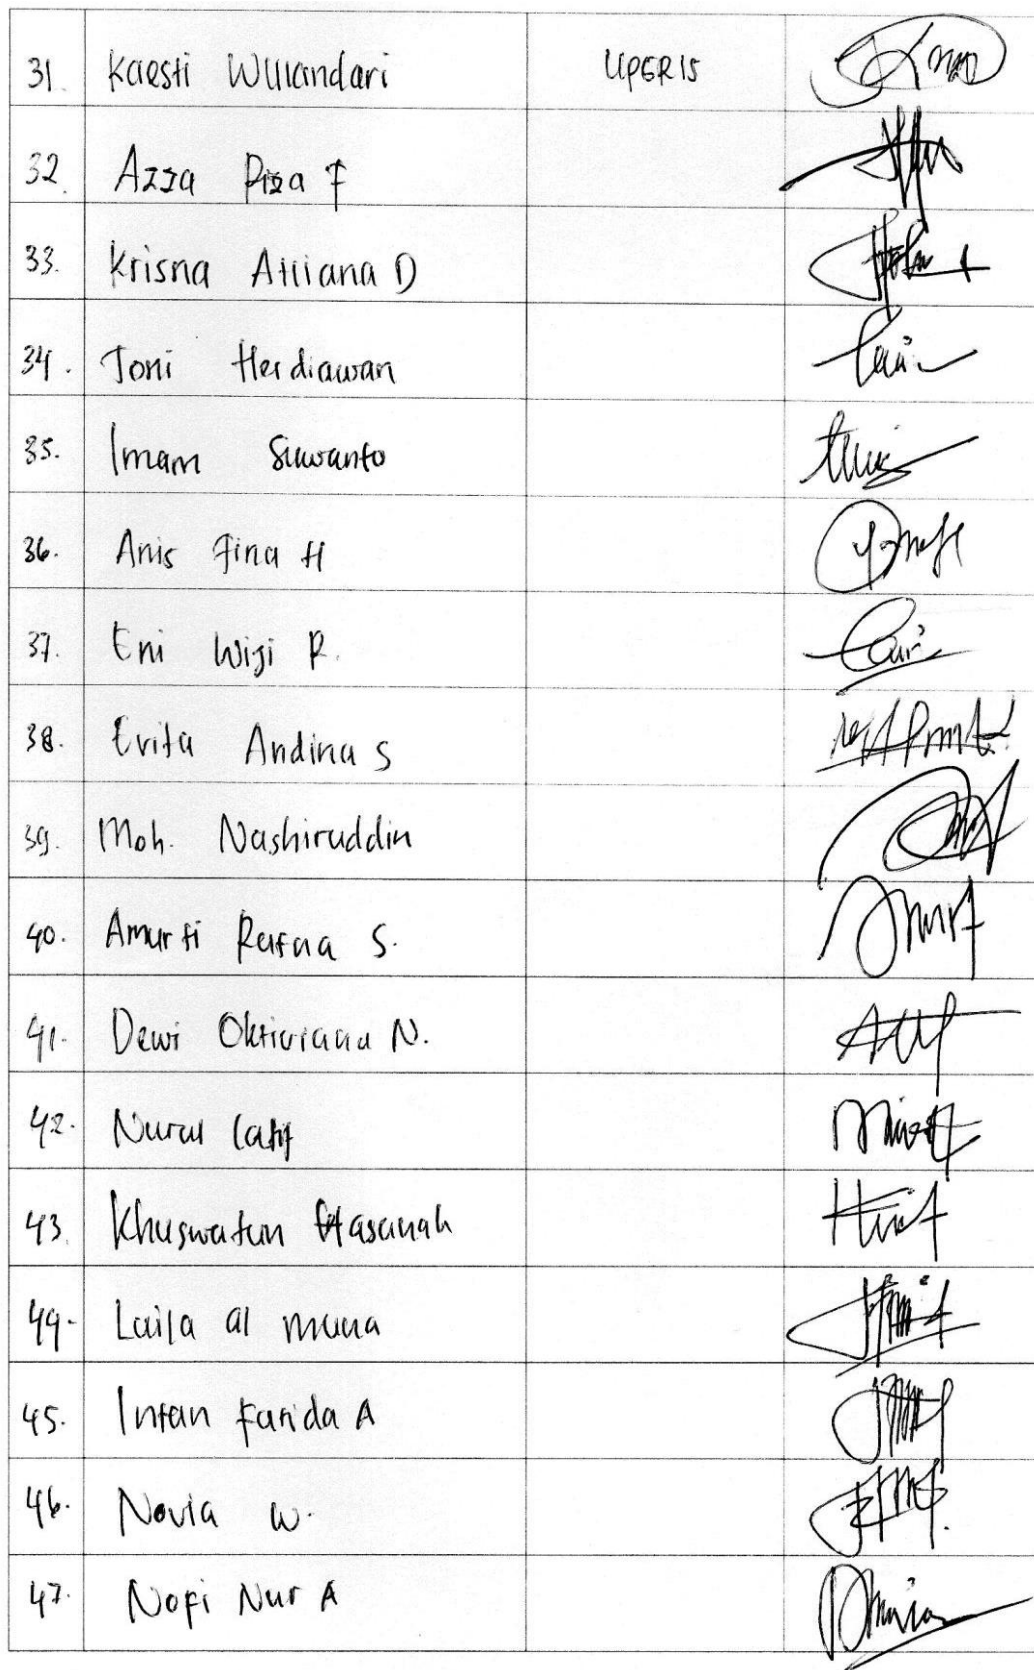 31. Kaesti Wulandari UPGRIS
32. Azza Riza F
33. Krisna Alliana D
34. Toni Herdiawan
35. Imam Suwanto
36. Anis Fina H
37. Eni Wigi R.
38. Evita Andina S
39. Moh. Nashiruddin
40. Amurti Ratna S.
41. Dewi Oktiviana N.
42. Nurul Latif
43. Khuswatun Hasanah
44. Laila al muna
45. Intan Farida A
46. Novia W.
47. Nofi Nur A